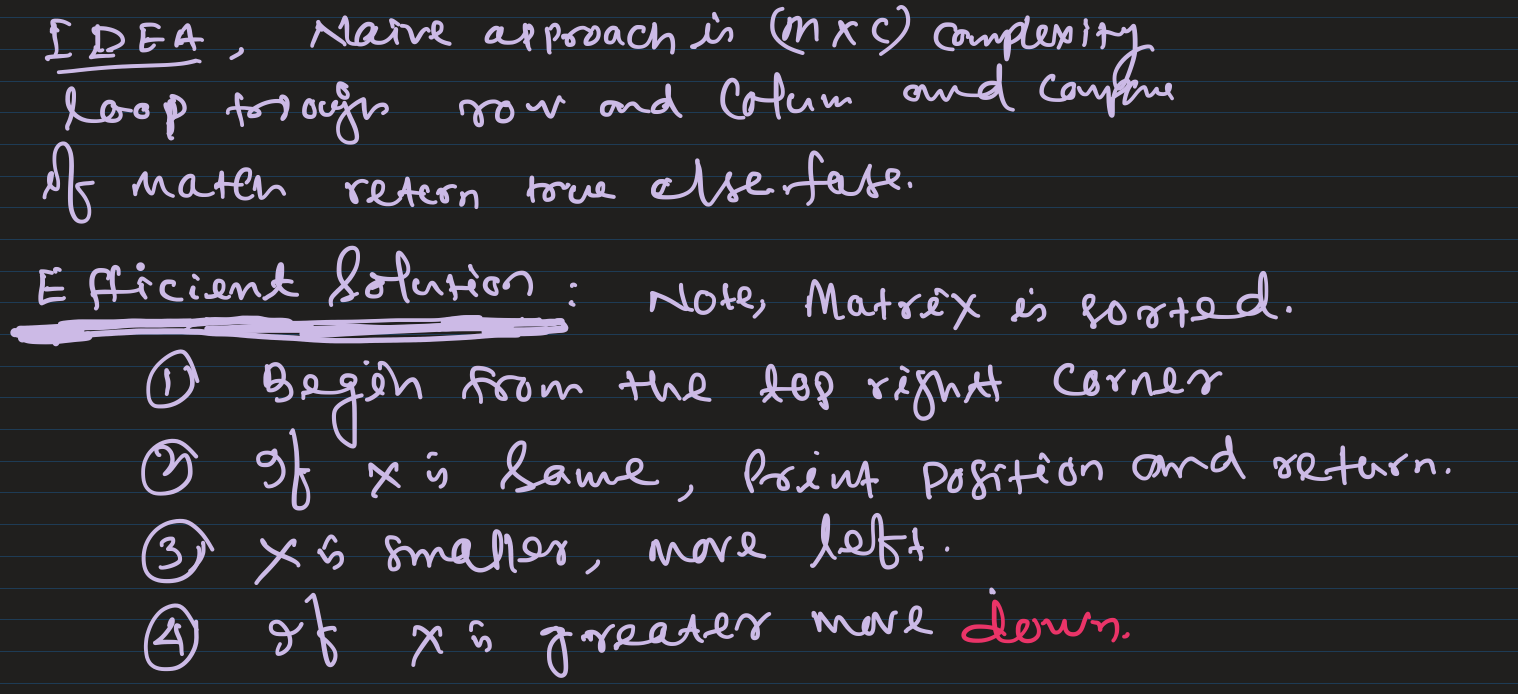 IDEA, Naive approach is (m x c) complexity
loop trough row and Colum and compare
if match retern true else false.
Efficient Solution: Note, Matrix is sorted.
① Begin from the top right corner
② If x is same, Print position and return.
③ x is smaller, move left.
④ If x is greater move down.